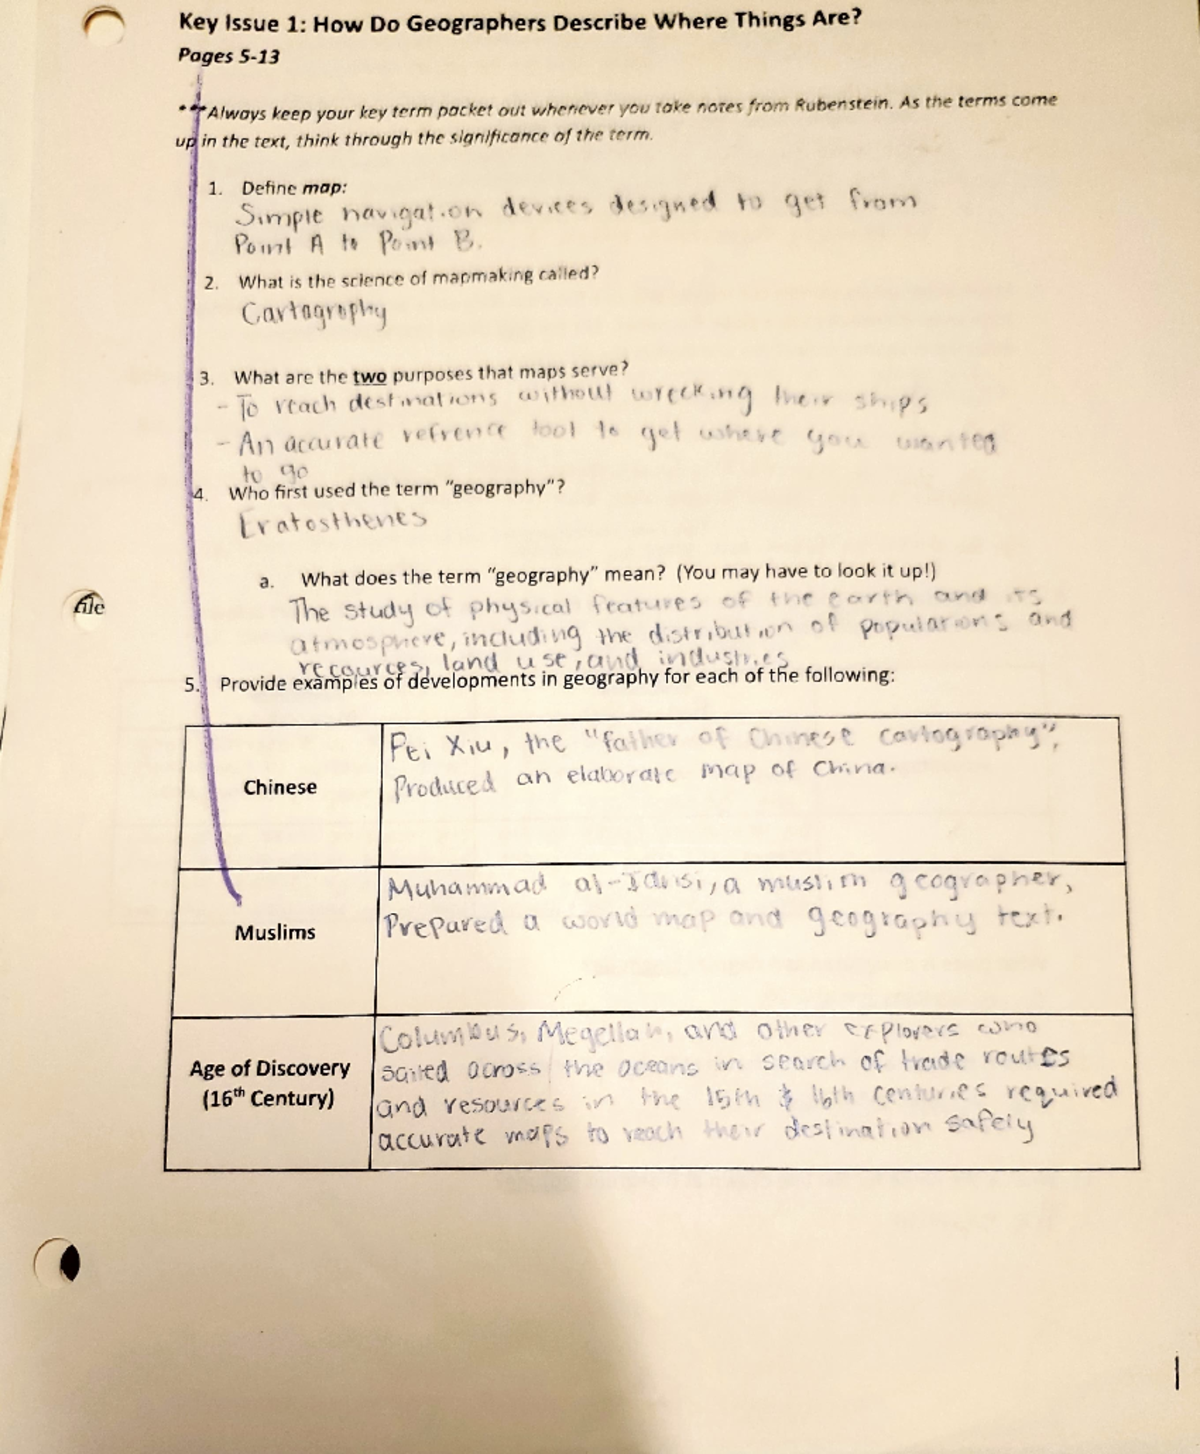 Key Issue 1: How Do Geographers Describe Where Things Are?
Pages 5-13
***Always keep your key term packet out whenever you take notes from Rubenstein. As the terms come
up in the text, think through the significance of the term.
1. Define map:
Simple navigation devices designed to get from
Point A to Point B.
2. What is the science of mapmaking called?
Cartography
3. What are the two purposes that maps serve?
- To reach destinations without wrecking their ships
- An accurate refrence tool to get where you wanted
to go
4. Who first used the term "geography"?
Eratosthenes
a. What does the term "geography" mean? (You may have to look it up!)
The study of physical features of the earth and its
atmosphere, including the distribution of populations and
recources, land use, and industries
5. Provide examples of developments in geography for each of the following:
Chinese
Pei Xiu, the "father of Chinese cartography",
Produced an elaborate map of China.
Muslims
Muhammad al-Idrisi, a muslim geographer,
Prepared a world map and geography text.
Age of Discovery
(16th Century)
Columbus, Megellan, and other explorers who
sailed across the oceans in search of trade routes
and resources in the 15th & 16th centuries required
accurate maps to reach their destination safely